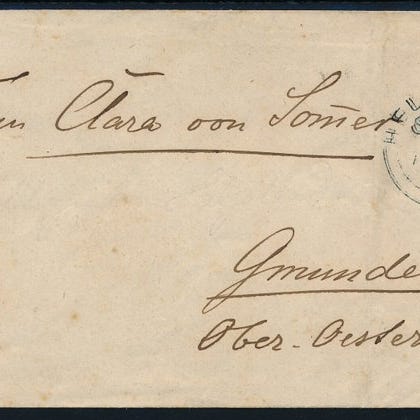 Clara von Som̄er
Gmunde
Ober-Oester